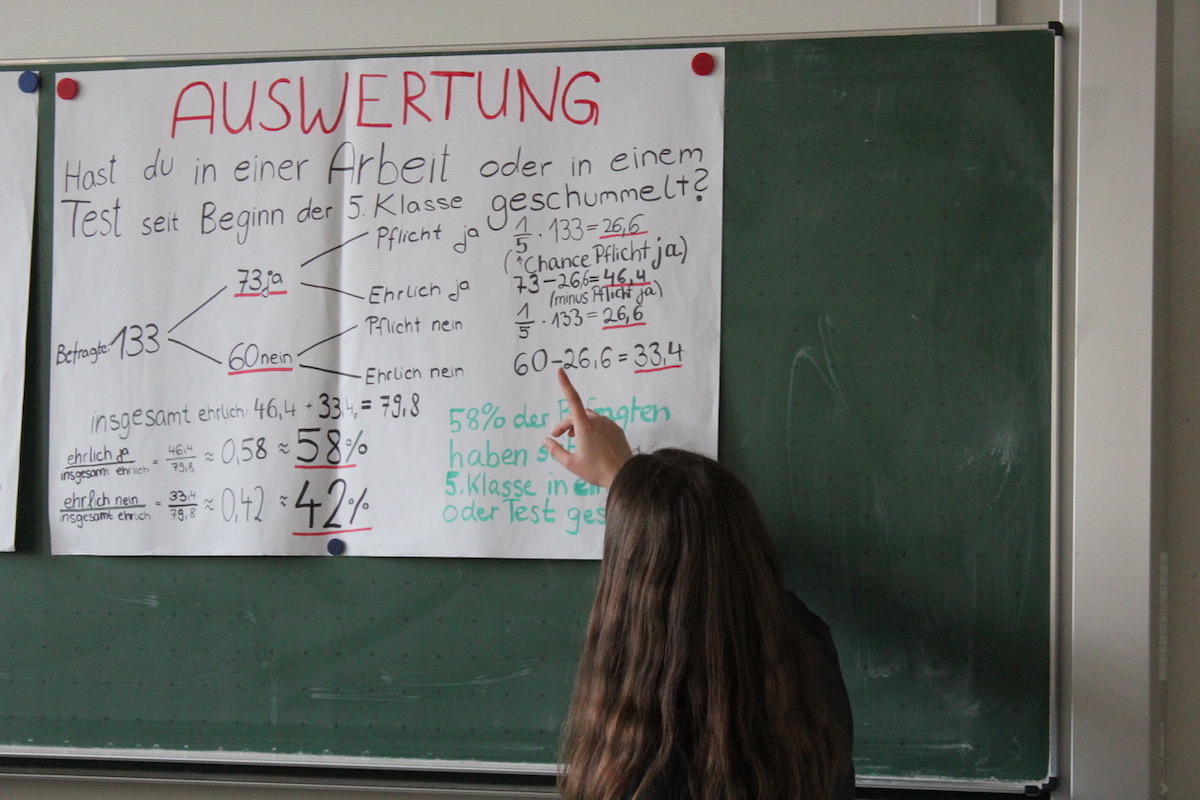 AUSWERTUNG
Hast du in einer Arbeit oder in einem
Test seit Beginn der 5. Klasse geschummelt?
Befragte: 133
73 ja
Pflicht ja
Ehrlich ja
60 nein
Pflicht nein
Ehrlich nein
1/5 · 133 = 26,6
(↑Chance Pflicht ja.)
73 – 26,6 = 46,4
(minus Pflicht ja)
1/5 · 133 = 26,6
60 – 26,6 = 33,4
insgesamt ehrlich: 46,4 + 33,4 = 79,8
ehrlich ja / insgesamt ehrlich = 46,4 / 79,8 ≈ 0,58 ≈ 58%
ehrlich nein / insgesamt ehrlich = 33,4 / 79,8 ≈ 0,42 ≈ 42%
58% der Befragten
haben
5. Klasse in
oder Test